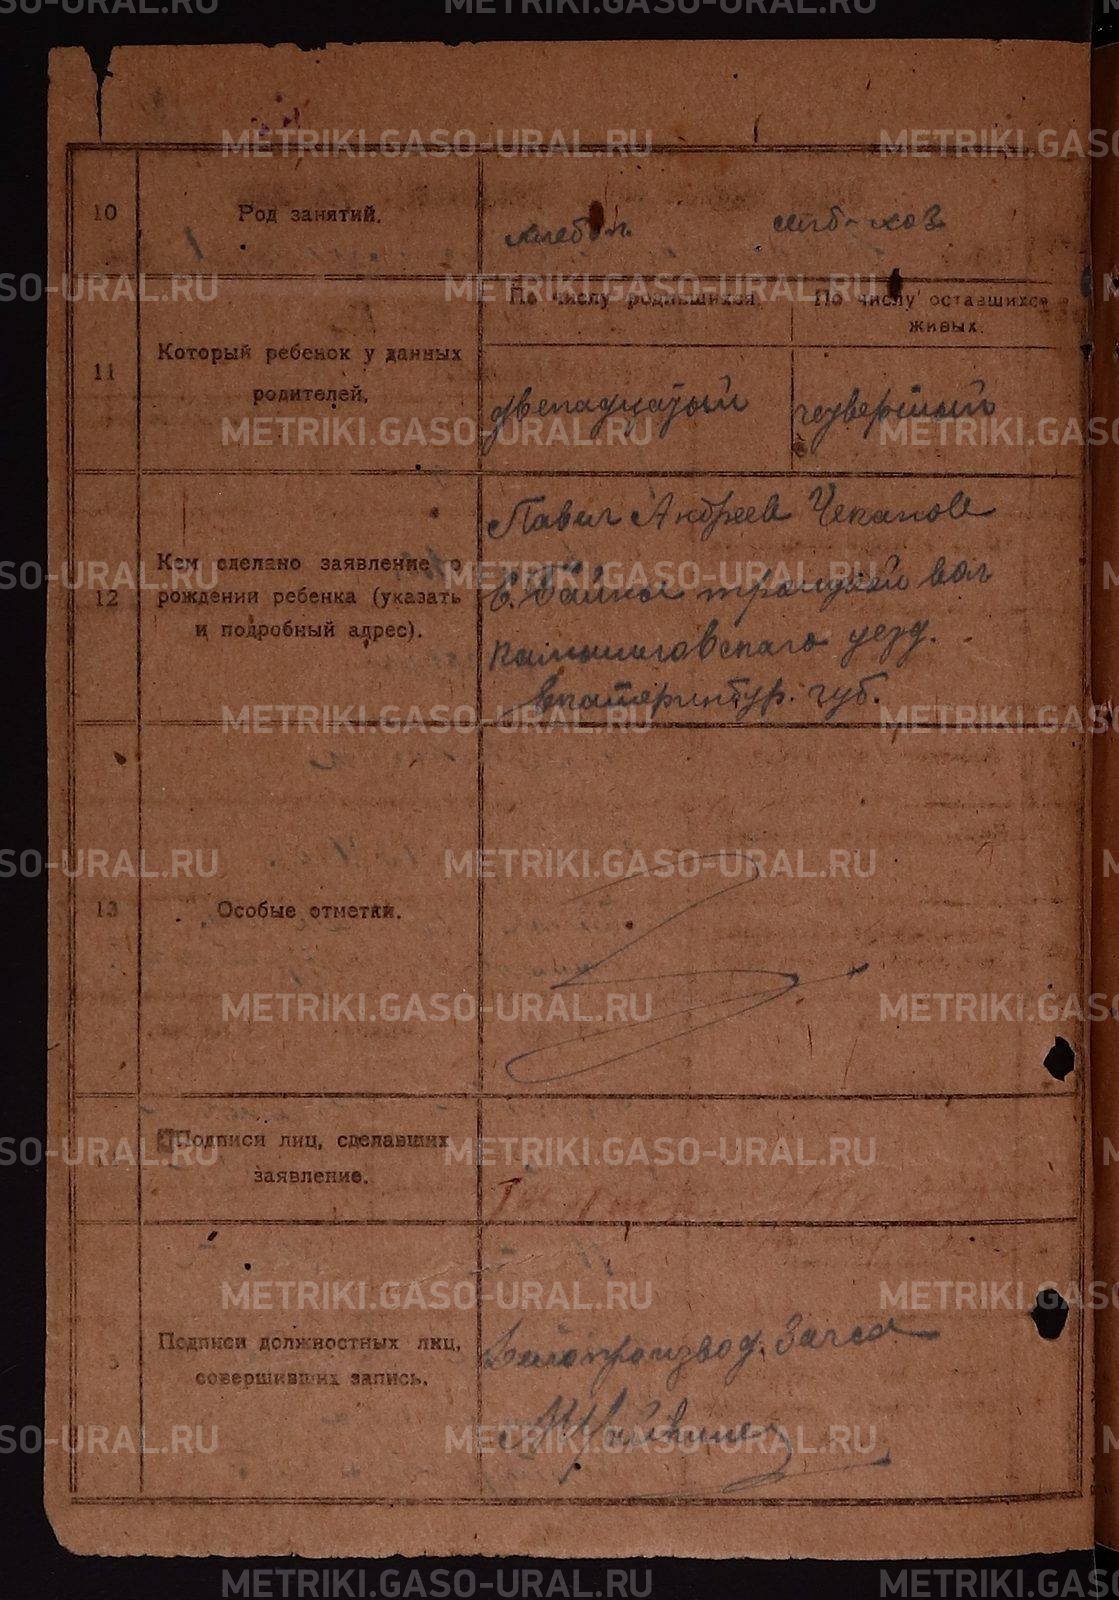 METRIKI.GASO-URAL.RU
10
Род занятий.
хлебоп.
11
Который ребенок у данных
родителей.
По числу родившихся.
По числу оставшихся
живых.
двенадцатый
четвертый
12
Кем сделано заявление о
рождении ребенка (указать
и подробный адрес).
Павел Андреев Чекалов
троицкой вол
камышловскаго уезд.
екатеринбур. губ.
13
Особые отметки.
Подписи лиц, сделавших
заявление.
Подписи должностных лиц,
совершивших запись.
Делопроизвод. Загса